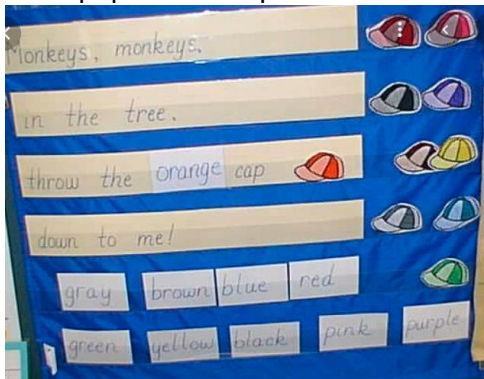 Monkeys, monkeys.
in the tree.
throw the orange cap
down to me!
gray brown blue red
green yellow black pink purple